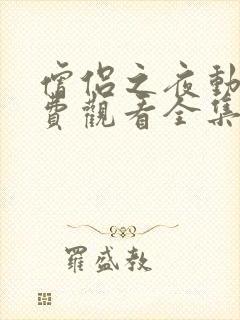 僧侶之夜動
費觀看全集
羅盛教